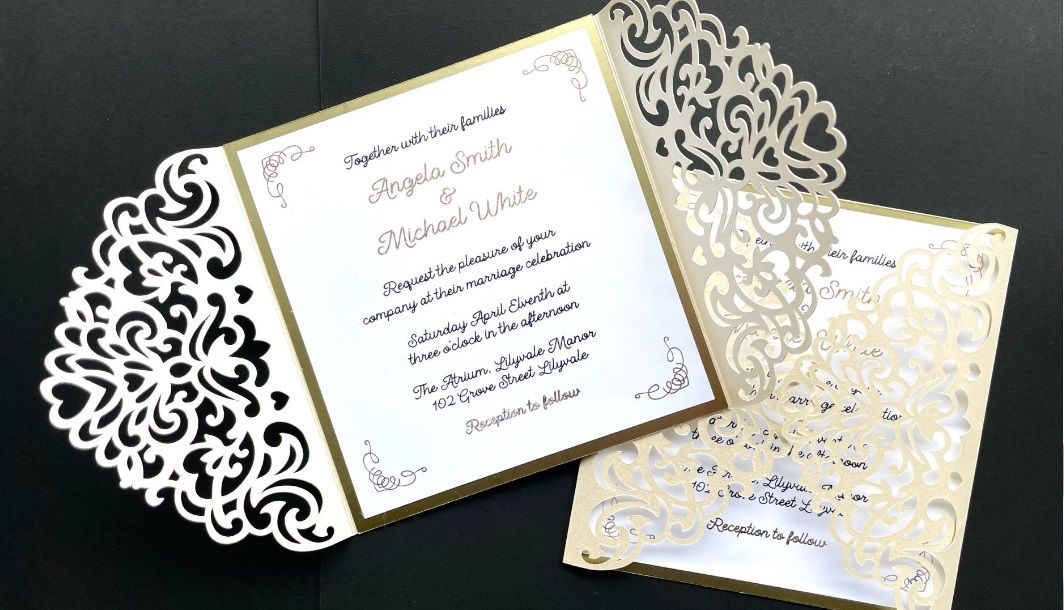 Together with their families
Angela Smith
&
Michael White
Request the pleasure of your
company at their marriage celebration
Saturday April Elventh at
three o'clock in the afternoon
The Atrium, Lilyvale Manor
102 Grove Street Lilyvale
Reception to follow
their families
Smith
Reception to follow